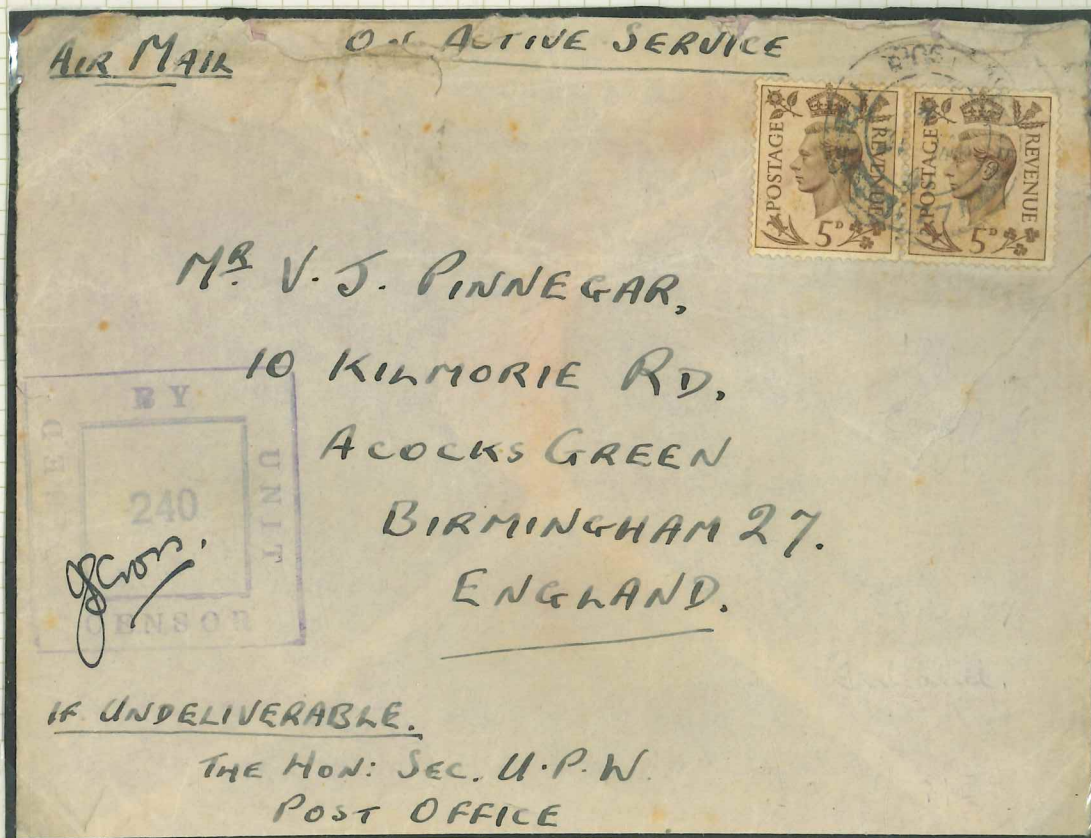 AIR MAIL
ON ACTIVE SERVICE
POSTAGE REVENUE
5D
POSTAGE REVENUE
5D
MR V. J. PINNEGAR,
10 KILMORIE RD,
ACOCKS GREEN
BIRMINGHAM 27.
ENGLAND.
BY
UNIT
240
CENSOR
IF UNDELIVERABLE.
THE HON: SEC. U.P.W.
POST OFFICE